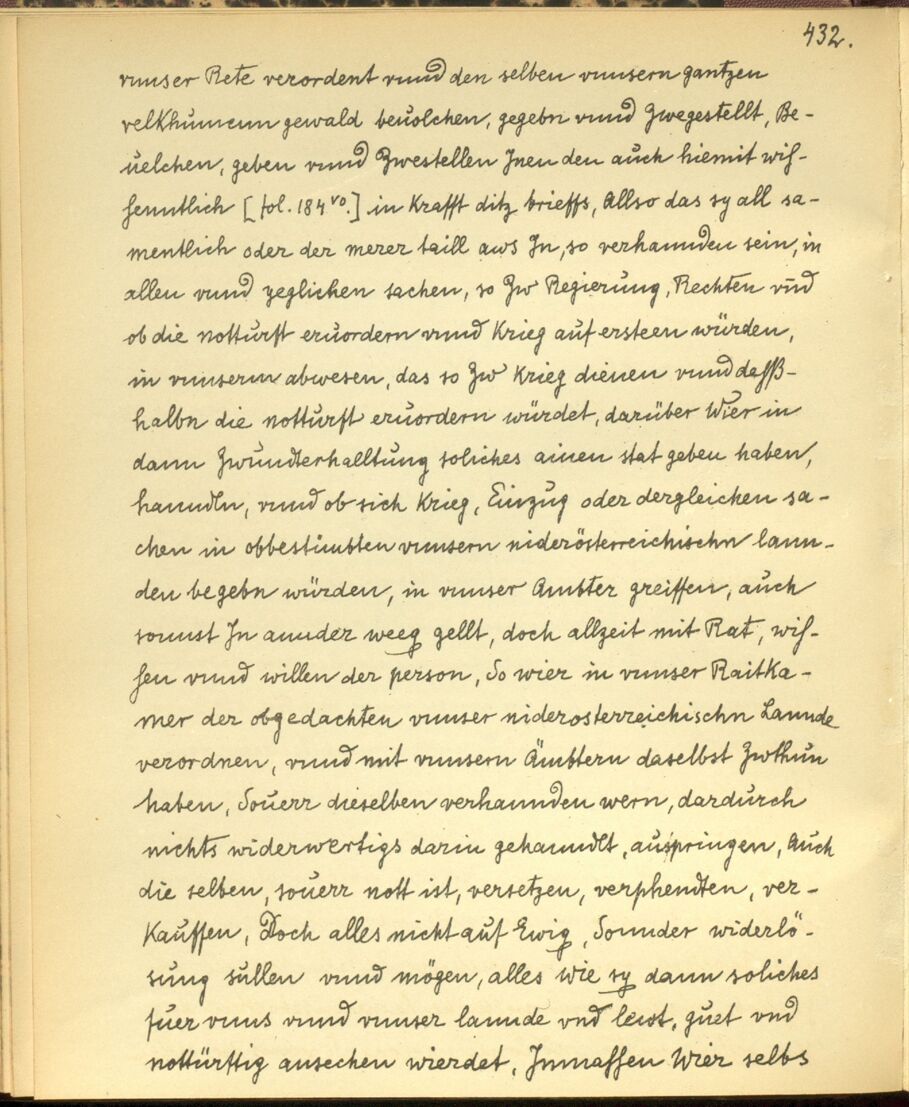 432.
vnnser Rete verordent vnnd den selben vnnsern gantzen
velkhumenn gewald beuolchen, gegebn vnnd Zwegestellt, Be-
uelchen, geben vnnd Zwestellen Jnen den auch hiemit wis-
senntlich [fol. 184 vo.] in Krafft ditz brieffs, Allso das sy all sa-
mentlich oder der merer taill aws In, so verhannden sein, in
allen vnnd yeglichen sachen, so Zw Regierung, Rechten vnd
ob die notturft eruordern vnnd Krieg auf ersteen würden,
in vnnserm abwesen, das so Zw Krieg dienen vnnd dessß-
halbn die notturft eruordern würdet, darüber Wier in
dann Zwundterhalltung soliches ainen stat geben haben,
hanndln, vnnd ob sich Krieg, Einzug oder dergleichen sa-
chen in obbestimbten vnnsern niderösterreichischn lann-
den begebn würden, in vnnser Ambter greiffen, auch
sonnst In annder weeg gellt, doch allzeit mit Rat, wis-
sen vnnd willen der person, So wier in vnnser Raitka-
mer der obgedachten vnnser niderosterreichischn Lannde
verordnen, vnnd mit vnnsern Ämbtern daselbst Zwthun
haben, Souerr dieselben verhannden wern, dardurch
nichts widerwertigs darin gehanndlt, auspringen, Auch
die selben, souerr nott ist, versetzen, verphendten, ver-
Kauffen, Doch alles nicht auf Ewig, Sonnder widerlö-
sung sullen vnnd mögen, alles Wie sy dann soliches
fuer vnns vnnd vnnser lannde vnd lewt, guet vnd
nottürftig ansechen wierdet, Inmassen Wier selbs